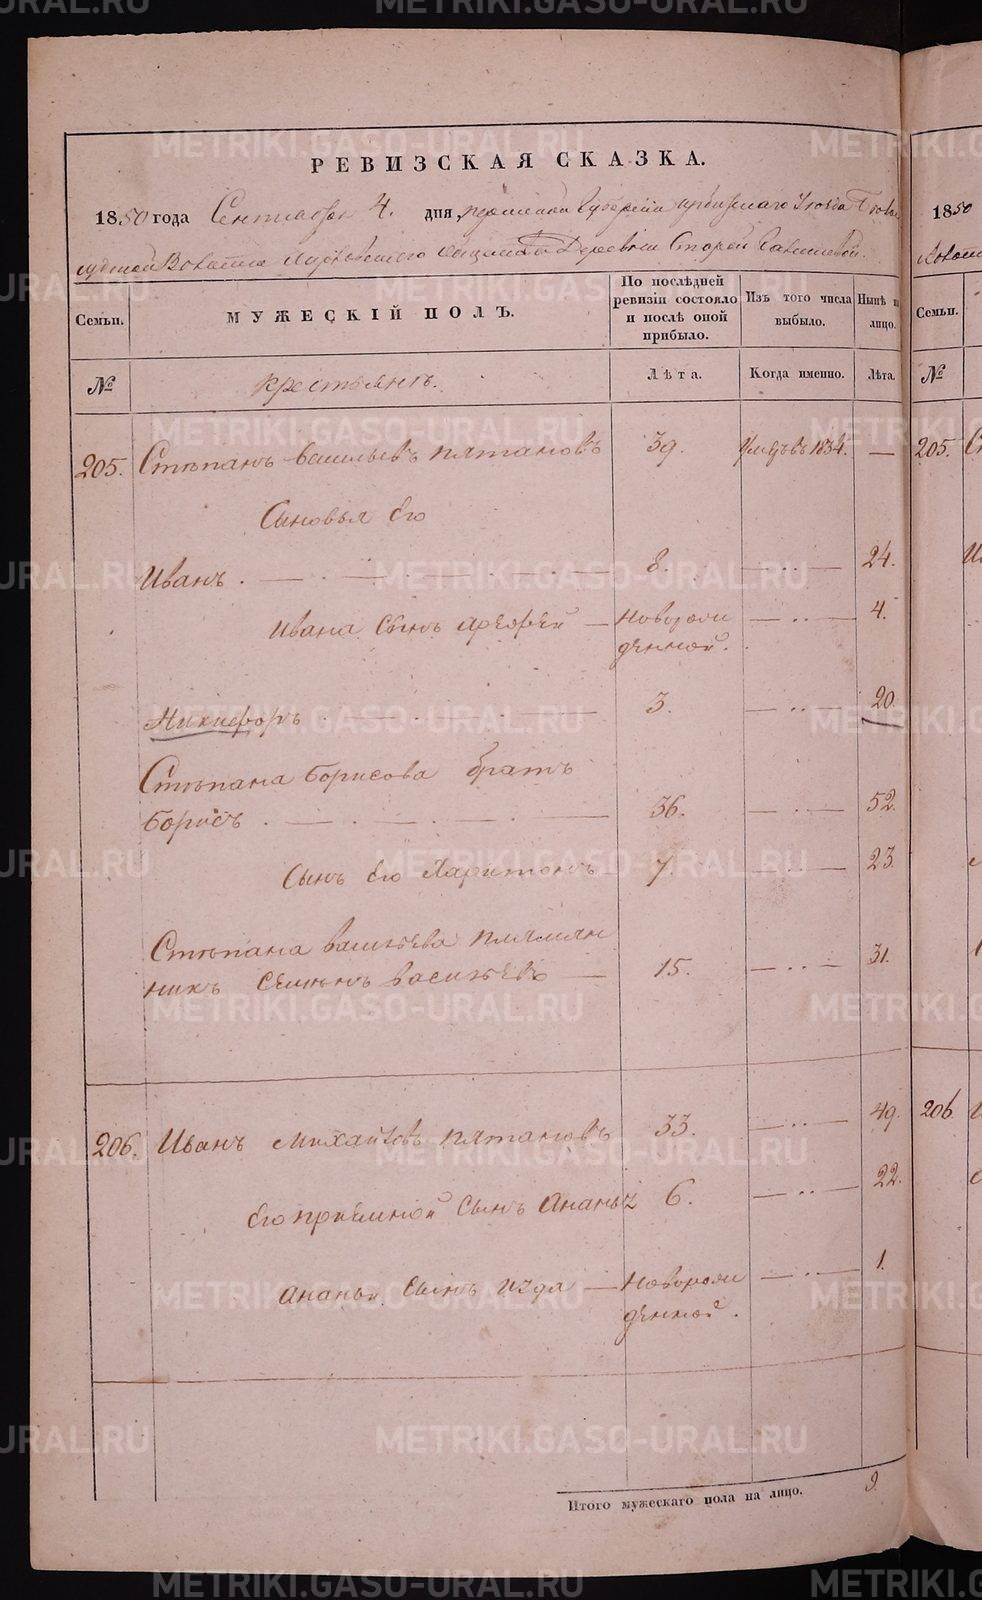 METRIKI.GASO-URAL.RU
РЕВИЗСКАЯ СКАЗКА.
1850 года Сентября 4. дня, Пермской Губернии Ирбитскаго Уезда
Волости Деревни Старой
Семьи.
МУЖЕСКІЙ ПОЛЪ.
По послѣдней ревизіи состояло и послѣ оной прибыло.
Изъ того числа выбыло.
Нынѣ на лицо.
№
Крестьянъ.
Лѣта.
Когда именно.
Лѣта.
205. Степанъ Васильевъ Пятановъ 39. въ 1834. —
Сыновья Его
Иванъ. 8. 24.
Ивана Сынъ Новорожденной. 4.
Никифоръ 3. 20.
Степана Борисова братъ
Борисъ 36. 52.
Сынъ Его Харитонъ 7. 23.
Степана Васильева племян
никъ Семенъ Васильевъ 15. 31.
206. Иванъ Михайловъ Пятановъ 33. 49.
Его приемной Сынъ Ананья 6. 22.
Ананьи Сынъ Новорожденной. 1.
Итого мужескаго пола на лицо. 9.
1850
Семьи.
№
205.
206